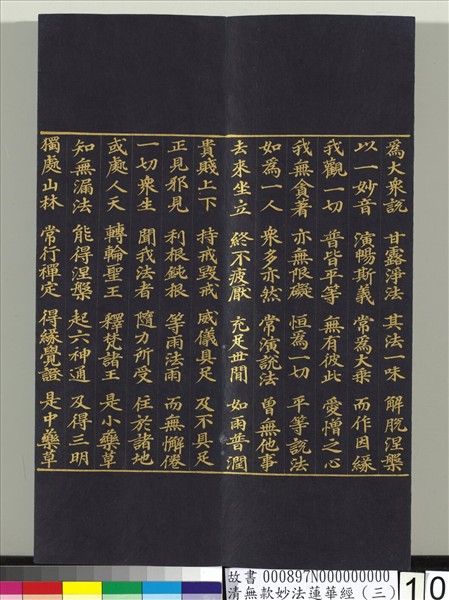 為大衆說　甘露淨法　其法一味　解脫涅槃
以一妙音　演暢斯義　常為大乗　而作因緣
我觀一切　普皆平等　無有彼此　愛憎之心
我無貪著　亦無限礙　恒為一切　平等說法
如為一人　衆多亦然　常演說法　曾無他事
去來坐立　終不疲厭　充足世間　如雨普潤
貴賤上下　持戒毀戒　威儀具足　及不具足
正見邪見　利根鈍根　等雨法雨　而無懈倦
一切衆生　聞我法者　隨力所受　住於諸地
或處人天　轉輪聖王　釋梵諸王　是小藥草
知無漏法　能得涅槃　起六神通　及得三明
獨處山林　常行禪定　得緣覺證　是中藥草
故書 000897N000000000
清無款妙法蓮華經（三）
10